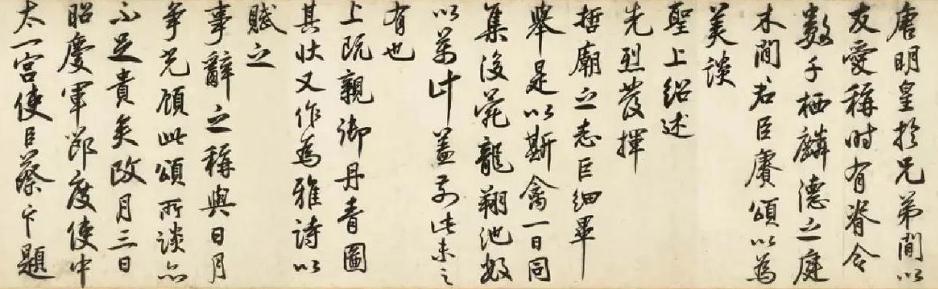 唐明皇於兄弟間以
友愛稱時有脊令
數千栖麟德之庭
木間君臣賡頌以為
美談
聖上紹述
先烈發揮
哲廟之志巨細畢
舉是以斯禽一日同
集後苑龍翔池數
以萬計蓋前此未之
有也
上既親御丹青圖
其狀又作為雅詩以
賦之
事辭之稱與日月
爭光顧此頌所談亦
不足貴矣政月三日
昭慶軍節度使中
太一宮使臣蔡卞題